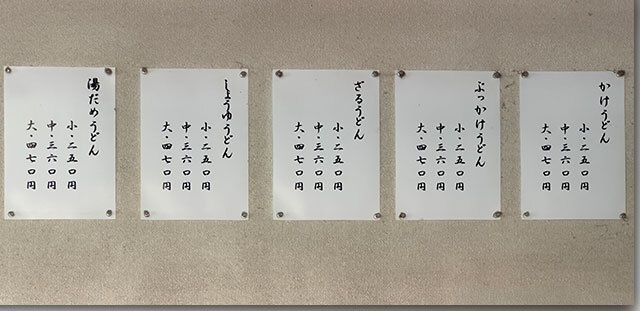 かけうどん
小・二五〇円
中・三六〇円
大・四七〇円
ぶっかけうどん
小・二五〇円
中・三六〇円
大・四七〇円
ざるうどん
小・二五〇円
中・三六〇円
大・四七〇円
しょうゆうどん
小・二五〇円
中・三六〇円
大・四七〇円
湯だめうどん
小・二五〇円
中・三六〇円
大・四七〇円